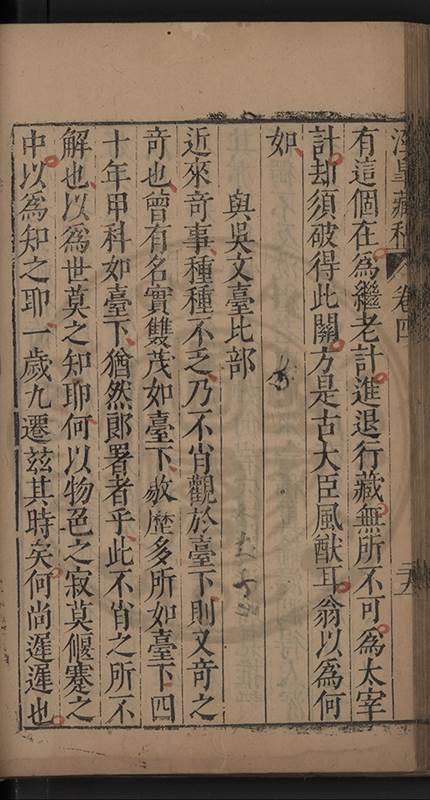 藏稿 卷四
有這個在爲繼老計進退行藏無所不可爲太宰
計却須破得此關方是古大臣風猷耳翁以爲何
如
與吳文臺比部
近來奇事種種不乏乃不肖觀於臺下則又奇之
奇也曾有名實雙茂如臺下敭歷多所如臺下四
十年甲科如臺下猶然郎署者乎此不肖之所不
解也以爲世莫之知耶何以物色之寂莫偃蹇之
中以爲知之耶一歲九遷茲其時矣何尚遲遲也